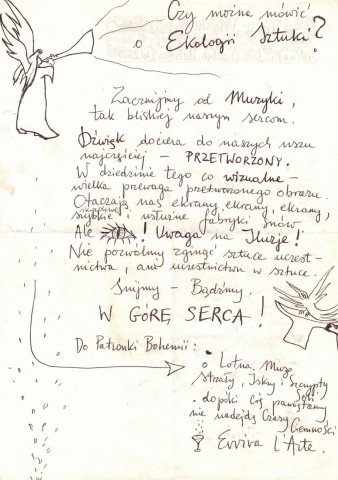 Czy można mówić
o Ekologii Sztuki?
Zacznijmy od Muzyki,
tak bliskiej naszym sercom.
Dźwięk dociera do naszych uszu
najczęściej – PRZETWORZONY.
W dziedzinie tego co wizualne –
wielka przewaga przetworzonego obrazu.
Otaczają nas ekrany, ekrany, ekrany,
szybkie i usłużne fabryki snów
Ale ! Uwaga na Iluzje!
Nie pozwólmy zginąć sztuce uczest-
nictwa, ani uczestnictwu w sztuce.
Śnijmy – Bądźmy.
W GÓRĘ SERCA!
Do Patronki Bohemii:
o Lotna Muzo
Strzały, Iskry i
dopóki Cię pamiętamy
nie nadejdą Czasy
Ciemności
Evviva L'Arte.